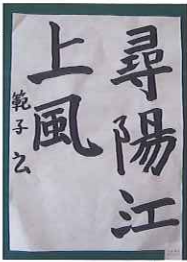 尋陽江
上風
範子云